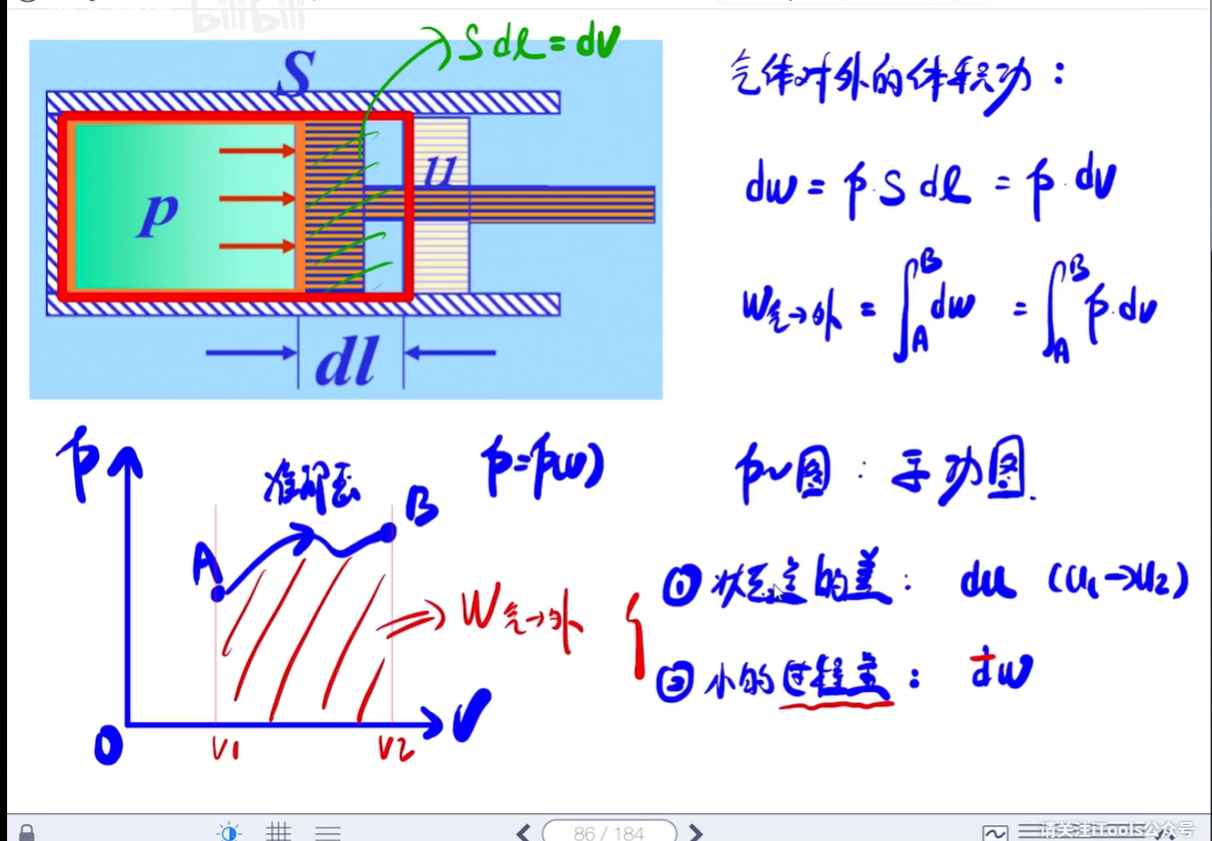 bilibili
S dl = dV
S
p
u
dl
气体对外的体积功：
dw = p·S dl = p·dV
W气→外 = ∫_A^B dw = ∫_A^B p·dv
p
准静态
p=p(v)
A
B
W气→外
O
V1
V2
V
pv图：示功图.
① 状态量的差： du (u₁→u₂)
② 小的过程量： đw
86 / 184
请关注iTools公众号